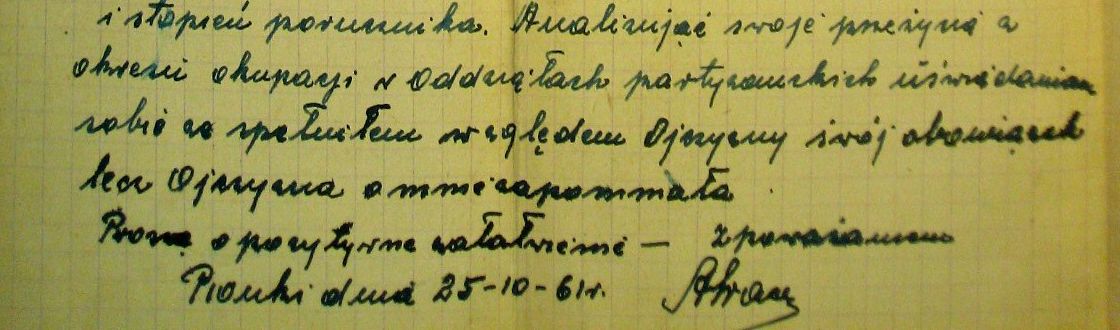 i stopień porucznika. Analizując swoje przeżycia z
okresu okupacji w oddziałach partyzanckich uświadamiam
sobie że spełniłem względem Ojczyzny swój obowiązek
lecz Ojczyzna o mnie zapomniała
Proszę o pozytywne załatwienie — z poważaniem
Pionki dnia 25-10-61r.